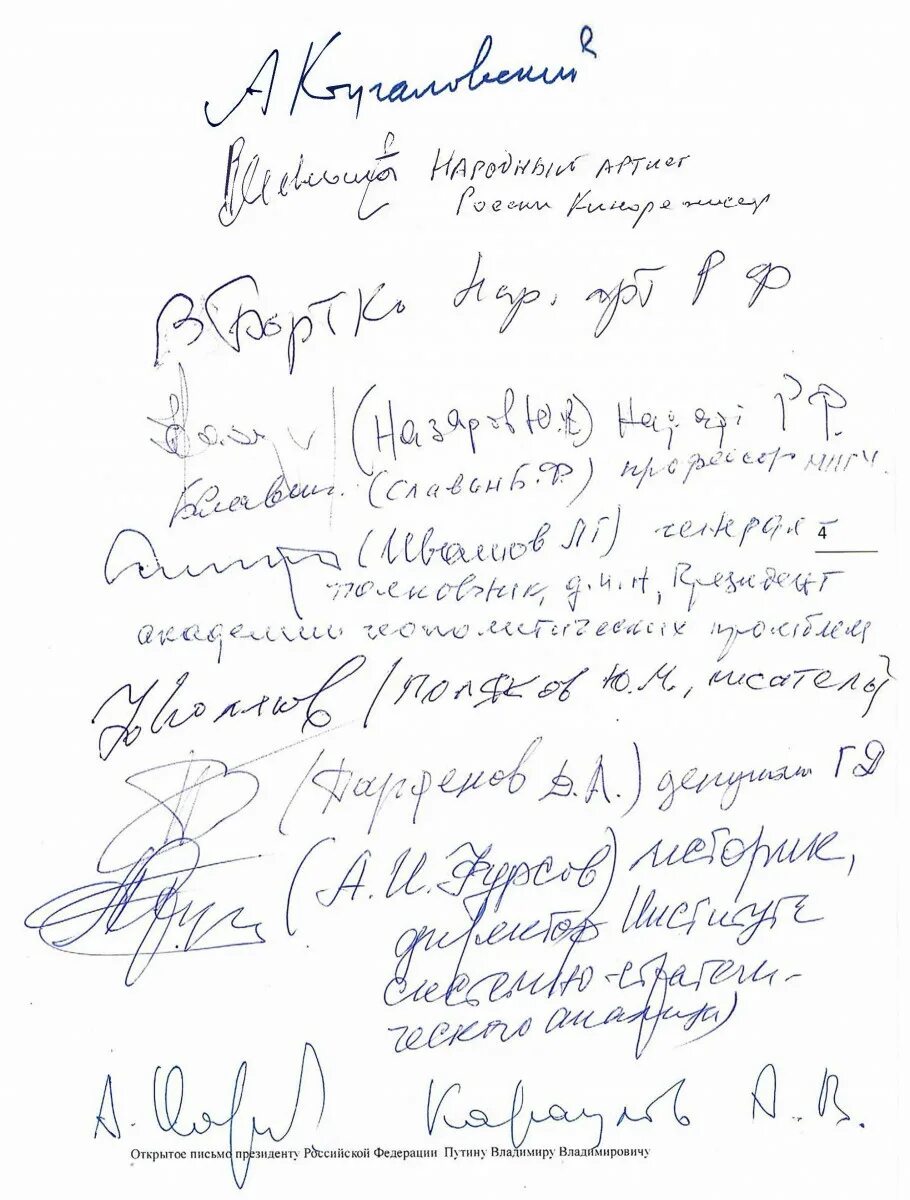 НАРОДНЫЙ АРТИСТ
России Кинорежиссер
В Бортко Нар. арт Р Ф
(Назаров Ю.В) Нар арт Р Ф.
(Славин Б.Ф) профессор
(Ивашов Л Г) генерал 4
полковник, д.и.н, Президент
академии геополитических проблем
(Поляков Ю.М., писатель)
(Парфенов Д.А.) депутат ГД
(А.И. Фурсов) историк,
директор Института
системно-стратеги-
ческого анализа)
Караулов А.В.
Открытое письмо президенту Российской Федерации Путину Владимиру Владимировичу